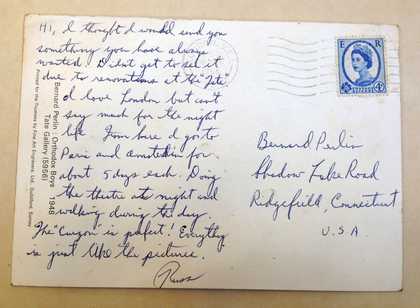 Hi, I thought I would send you
something you have always
wanted. Didnt get to see it
due to renovations at the "Tate"
I love London but can't
say much for the night
life. From here I go to
Paris and Amsterdam for
about 5 days each. Doing
the theatre at night and
walking during the day.
The "Curzon" is perfect! Everything
is just like the pictures.
Russ
Bernard Perlin : Orthodox Boys 1948
Tate Gallery (5956)
Printed for the Trustees by Fine Art Engravers, Ltd., Guildford, Surrey
E R
4D
Bernard Perlin
Shadow Lake Road
Ridgefield, Connecticut
U.S.A.